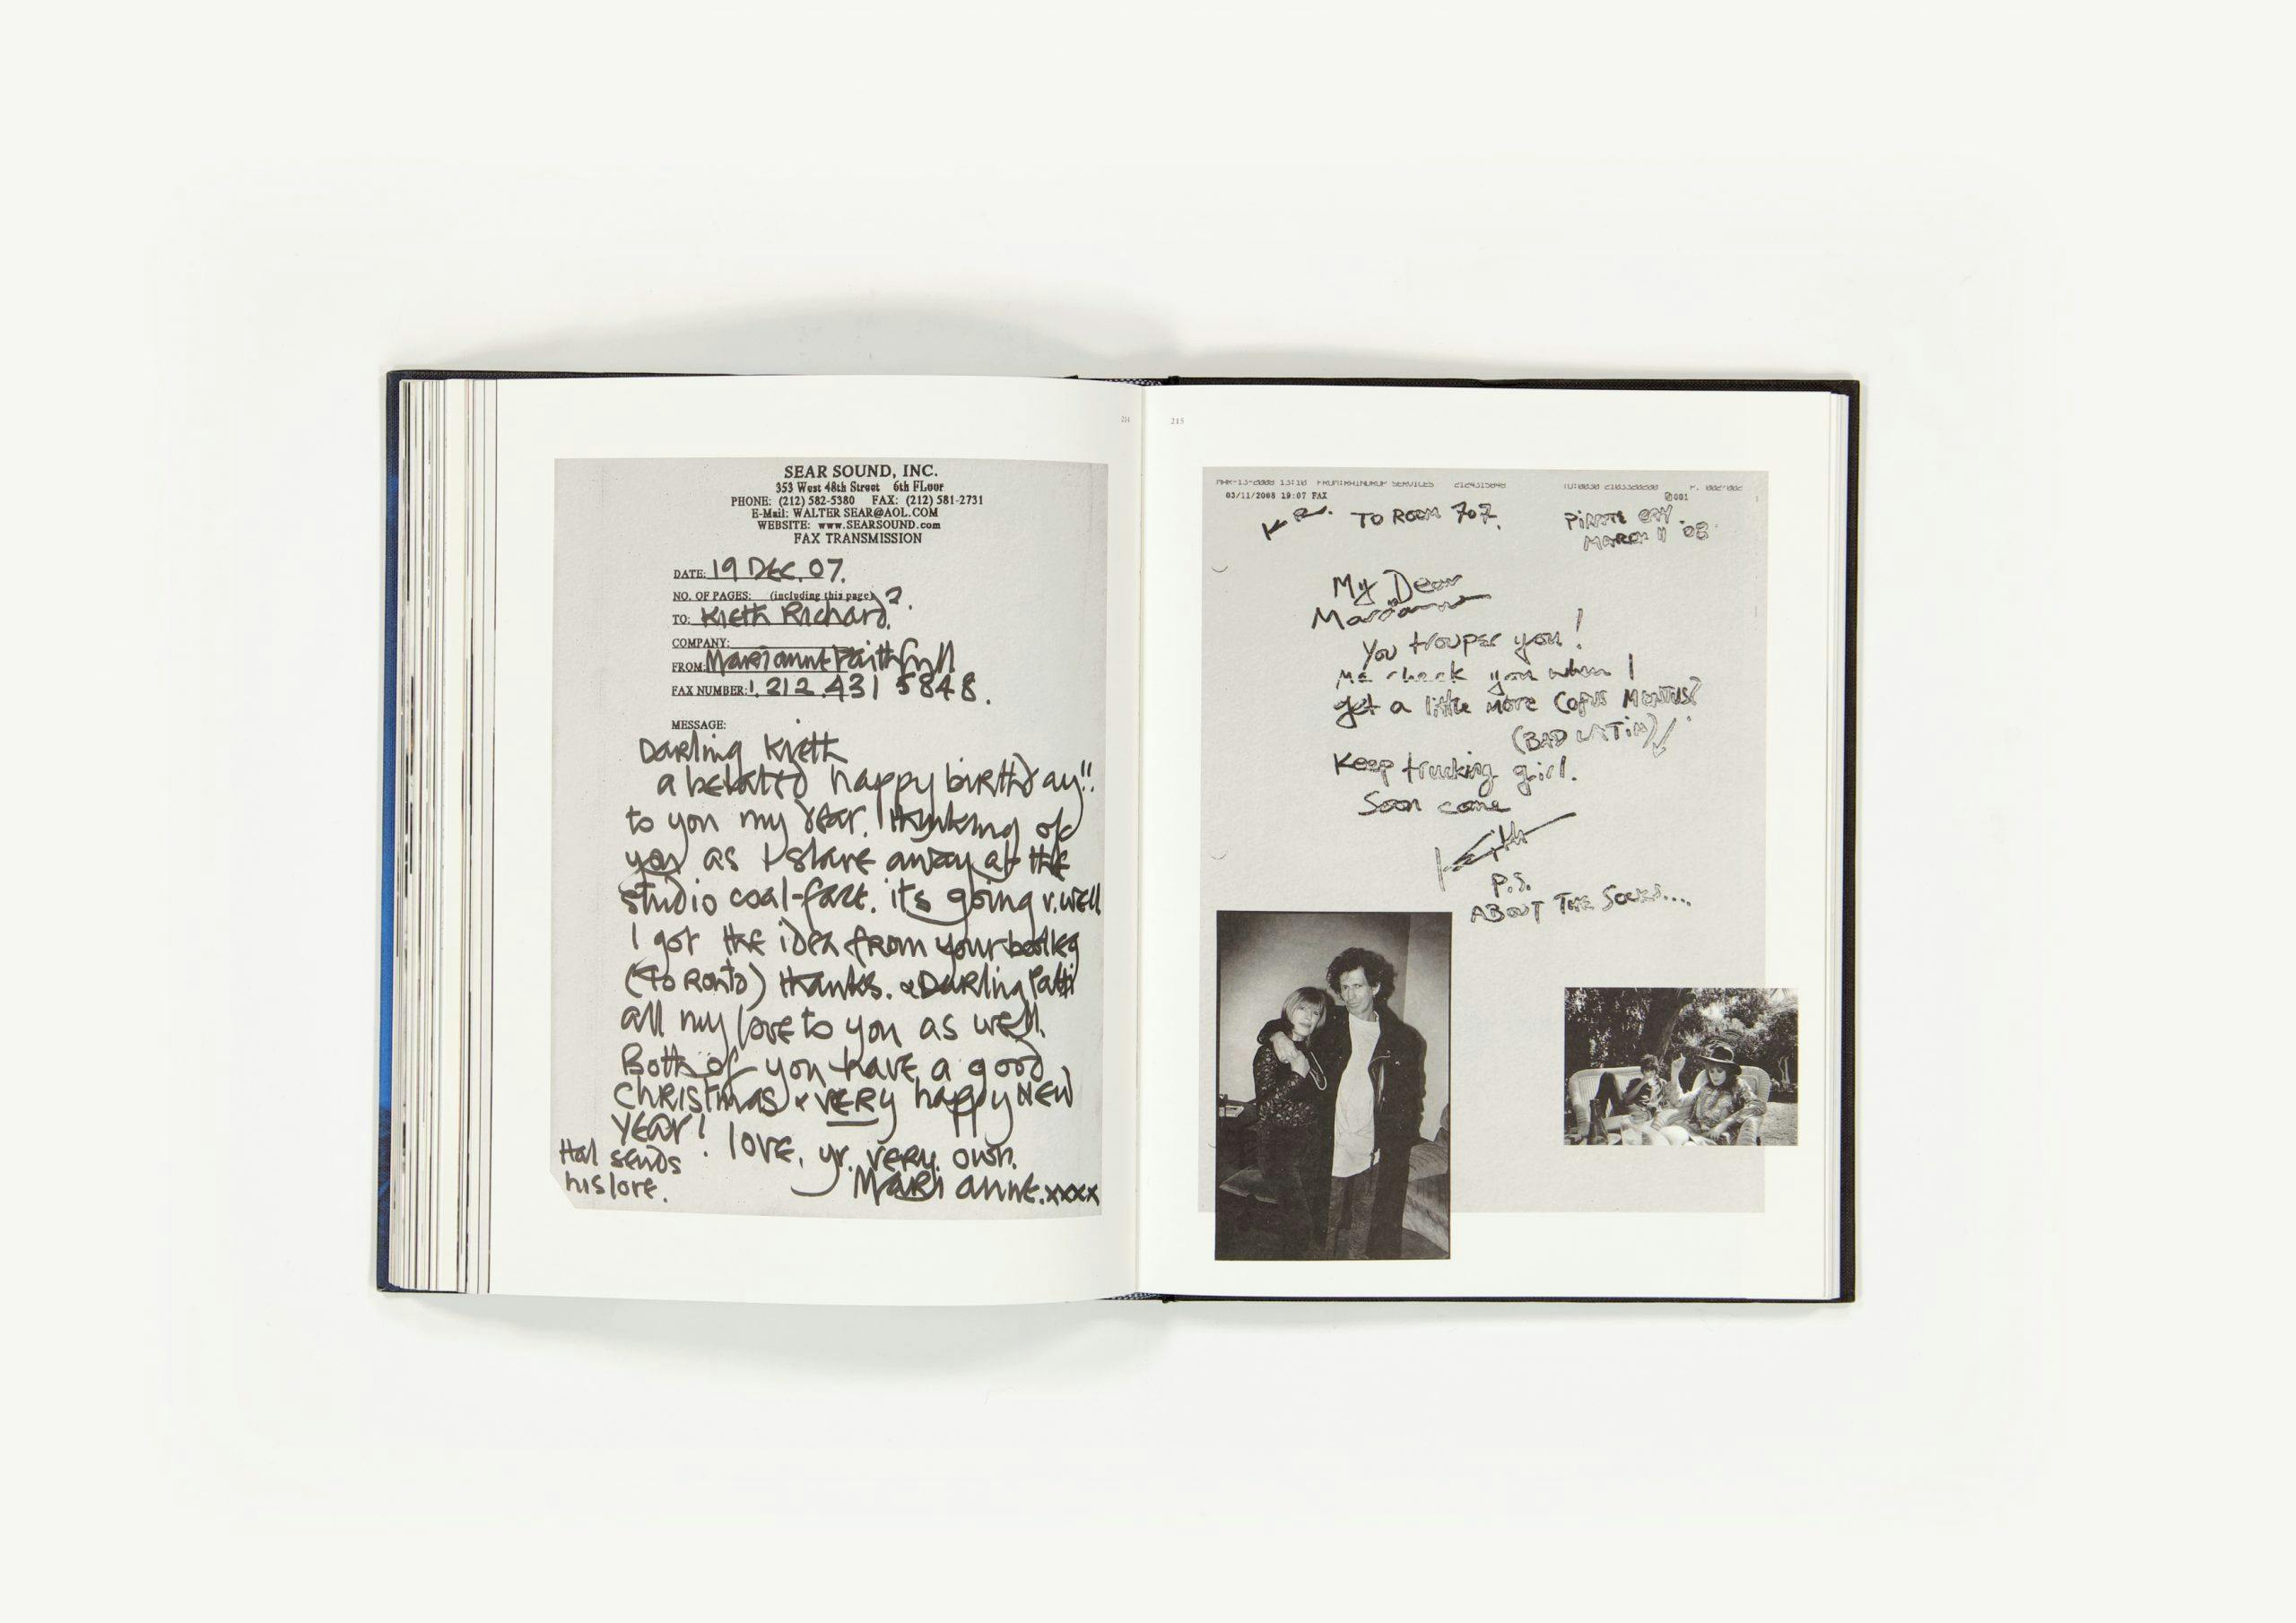 214
SEAR SOUND, INC.
353 West 48th Street 6th FLoor
PHONE: (212) 582-5380 FAX: (212) 581-2731
E-Mail: WALTER SEAR@AOL.COM
WEBSITE: www.SEARSOUND.com
FAX TRANSMISSION
DATE: 19 DEC. 07.
NO. OF PAGES: (including this page) 2.
TO: Kieth Richard.
COMPANY:
FROM: Marianne Faithfull
FAX NUMBER: 1.212.431 5848.
MESSAGE:
Darling Kieth
a belated happy birthday!!
to you my dear. thinking of
you as I slave away at the
studio coal-face. its going v. well
I got the idea from your bootleg
(toronto) thanks. & Darling Patti
all my love to you as well.
Both of you have a good
christmas & VERY happy NEW
YEAR! love, yr. very. own.
Marianne. xxxx
Hal sends
his love.
215
MAR-13-2008 13:10 FROM:RAINDROP SERVICES 2124315848
P. 002/002
03/11/2008 19:07 FAX
001
TO ROOM 707.
PIRATE CAY.
MARCH 11 '08
My Dear
Marianne
You trouper you!
Me check you when I
get a little more Copus Mentus?
(BAD LATIN)!
Keep trucking girl.
Soon come
Keith
P.S.
ABOUT THE SOCKS....